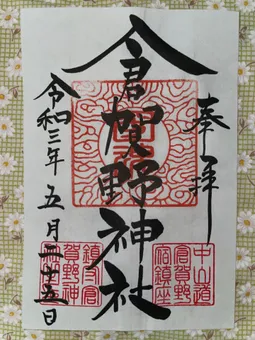 奉拝
倉賀野神社
令和三年五月二十五日
中山道
倉賀野
宿鎮座